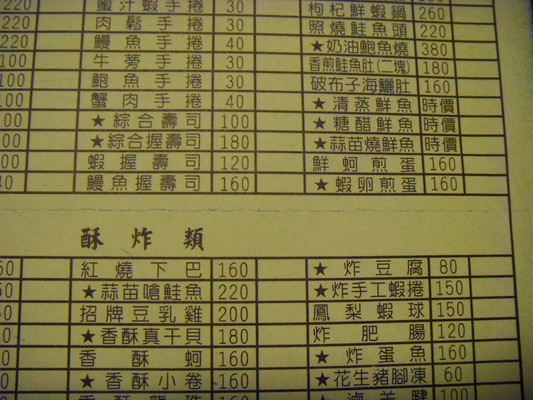 220 蜜汁蝦手捲 30 枸杞鮮蝦鍋 260
220 肉鬆手捲 30 照燒鮭魚頭 220
220 鰻魚手捲 40 ★奶油鮑魚燒 380
100 牛蒡手捲 30 香煎鮭魚肚(二塊) 180
100 鮑魚手捲 30 破布子海鱺肚 160
100 蟹肉手捲 40 ★清蒸鮮魚 時價
100 ★綜合壽司 100 ★糖醋鮮魚 時價
00 ★綜合握壽司 180 ★蒜苗燒鮮魚 時價
00 蝦握壽司 120 鮮蚵煎蛋 160
40 鰻魚握壽司 160 ★蝦卵煎蛋 160
酥炸類
50 紅燒下巴 160 ★炸豆腐 80
50 ★蒜苗嗆鮭魚 220 ★炸手工蝦捲 150
招牌豆乳雞 200 鳳梨蝦球 150
★香酥真干貝 180 炸肥腸 120
香酥蚵 160 ★炸蛋魚 160
★香酥小卷 160 ★花生豬腳凍 60
100